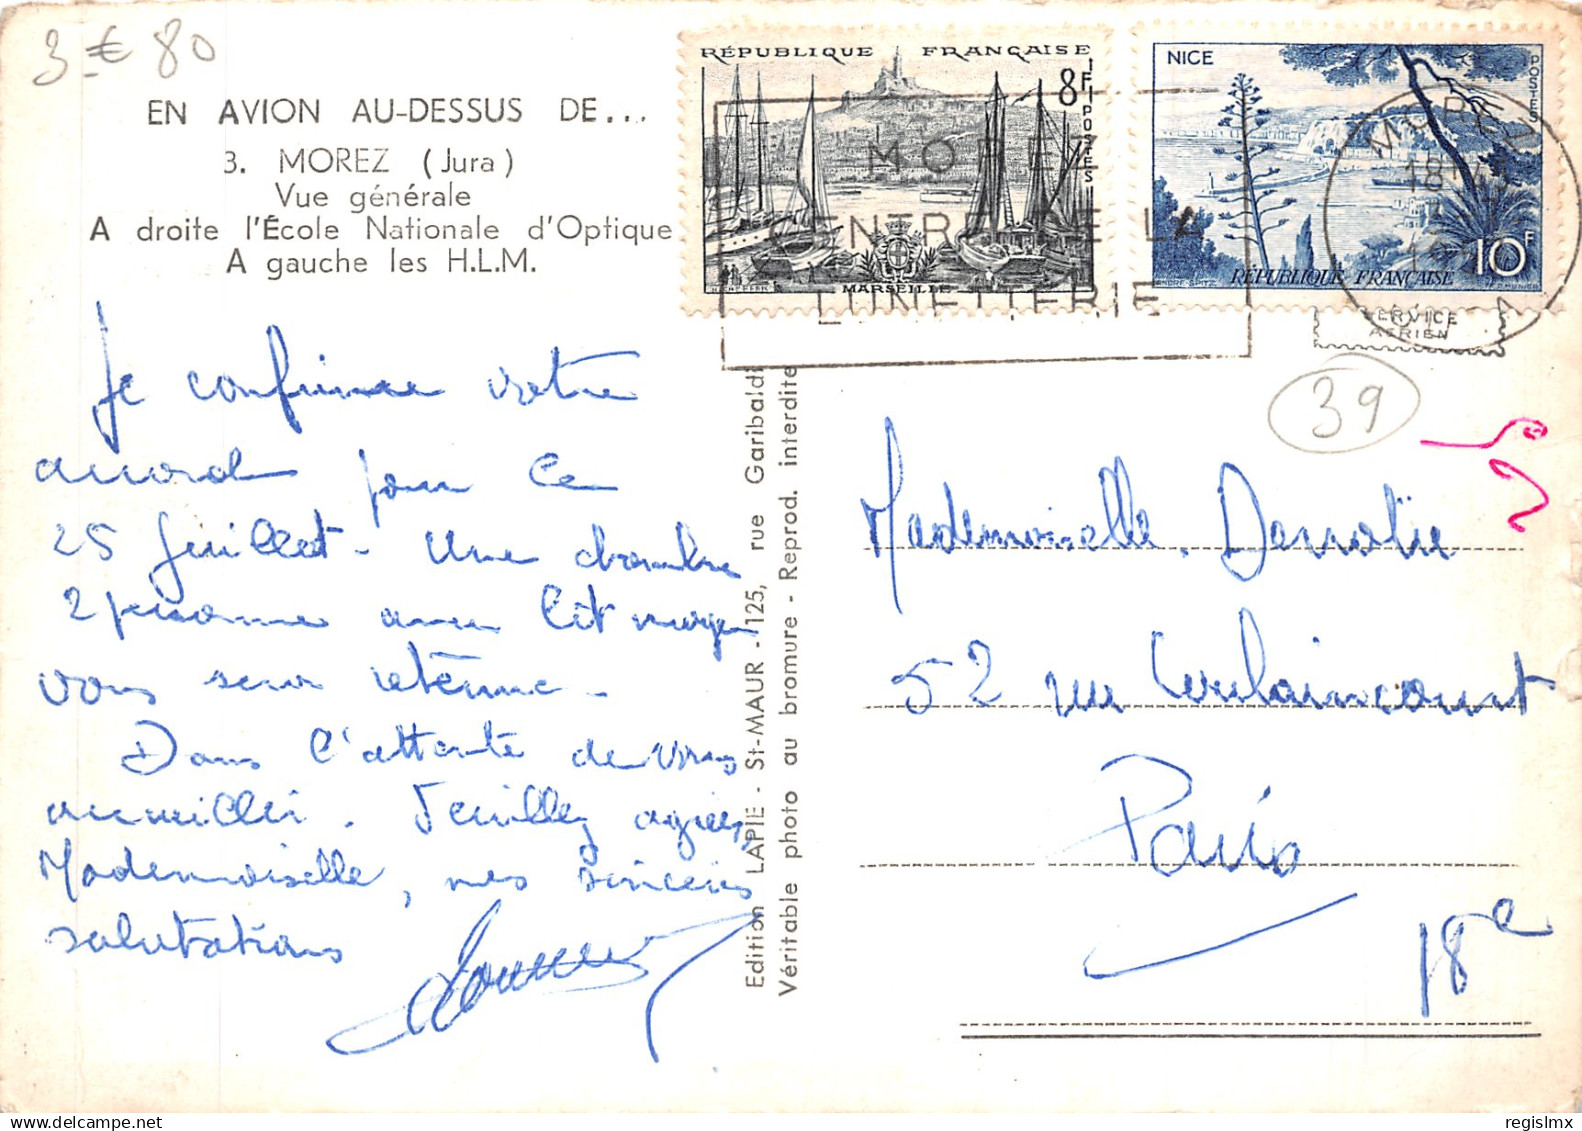 3 € 80
EN AVION AU-DESSUS DE...
3. MOREZ (Jura)
Vue générale
A droite l'École Nationale d'Optique
A gauche les H.L.M.
RÉPUBLIQUE FRANÇAISE
8F
POSTES
MARSEILLE
NICE
POSTES
10F
RÉPUBLIQUE FRANÇAISE
MOREZ
CENTRE DE LA
LUNETTERIE
MOREZ
18H
SERVICE
AÉRIEN
39
Je confirme votre
accord pour le
25 Juillet - Une chambre
2 personne avec lit
vous sera retenue -
Dans l'attente de vous
accueillir. Veuillez agréer,
Mademoiselle, mes sincères
salutations
Edition LAPIE - St-MAUR - 125, rue Garibaldi
Véritable photo au bromure - Reprod. interdite
Mademoiselle.
52 rue Caulaincourt
Paris
18e
regislmx